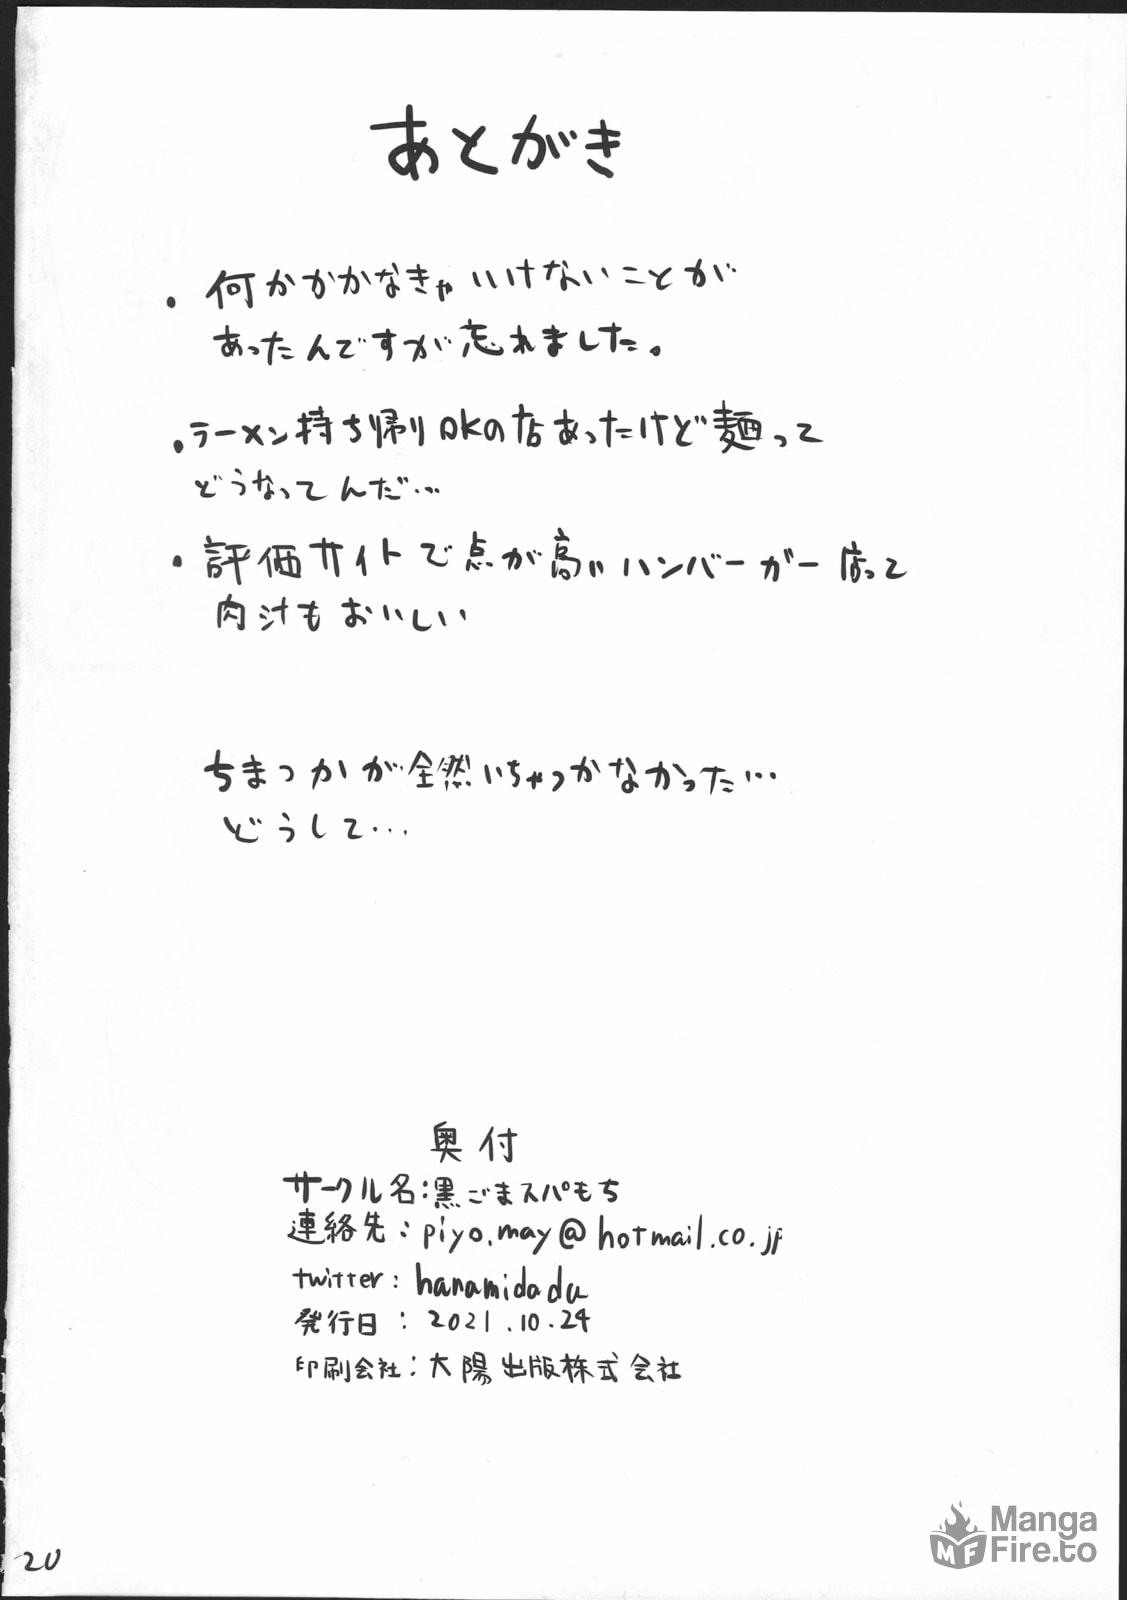 あとがき
・何かかかなきゃいけないことが
あったんですが忘れました。
・ラーメン持ち帰りOKの店あったけど麺って
どうなってんだ…
・評価サイトで点が高いハンバーガー店って
肉汁もおいしい
ちまつかが全然いちゃつかなかった…
どうして…
奥付
サークル名:黒ごまスパもち
連絡先:piyo.may@hotmail.co.jp
twitter:hanamidadu
発行日:2021.10.24
印刷会社:大陽出版株式会社
20
Manga
Fire.to
MF